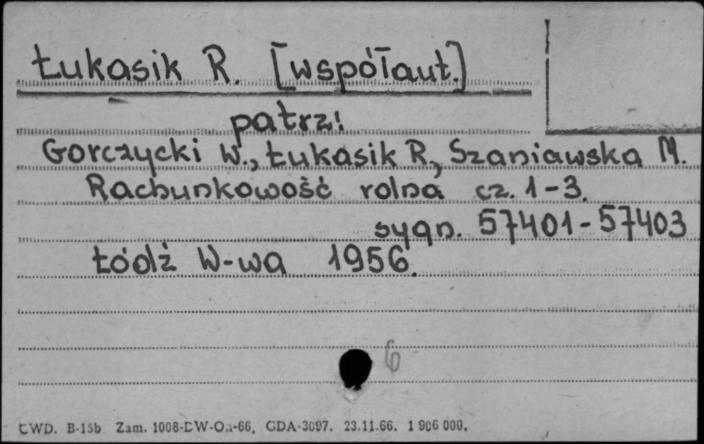 Łukasik R. [współaut.]
patrz:
Gorczycki W., Łukasik R., Szaniawska M.
Rachunkowość rolna cz. 1-3.
sygn. 57401-57403
Łódź W-wa 1956.
6
CWD. B-15b Zam. 1008-DW-Oa-66. GDA-3097. 23.11.66. 1 906 000.